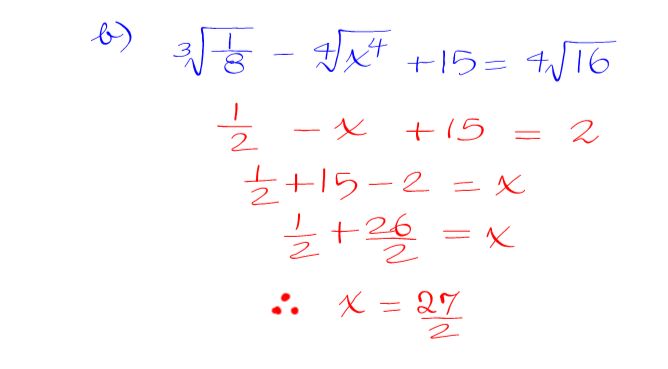 b) ∛(1/8) - ∜(x⁴) + 15 = ∜16
1/2 - x + 15 = 2
1/2 + 15 - 2 = x
1/2 + 26/2 = x
∴ x = 27/2